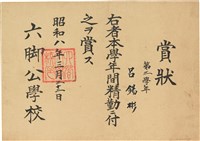 賞狀
第二學年
呂銘彬
右者本學年間精勤付
之ヲ賞ス
昭和八年三月二十一日
六脚公學校